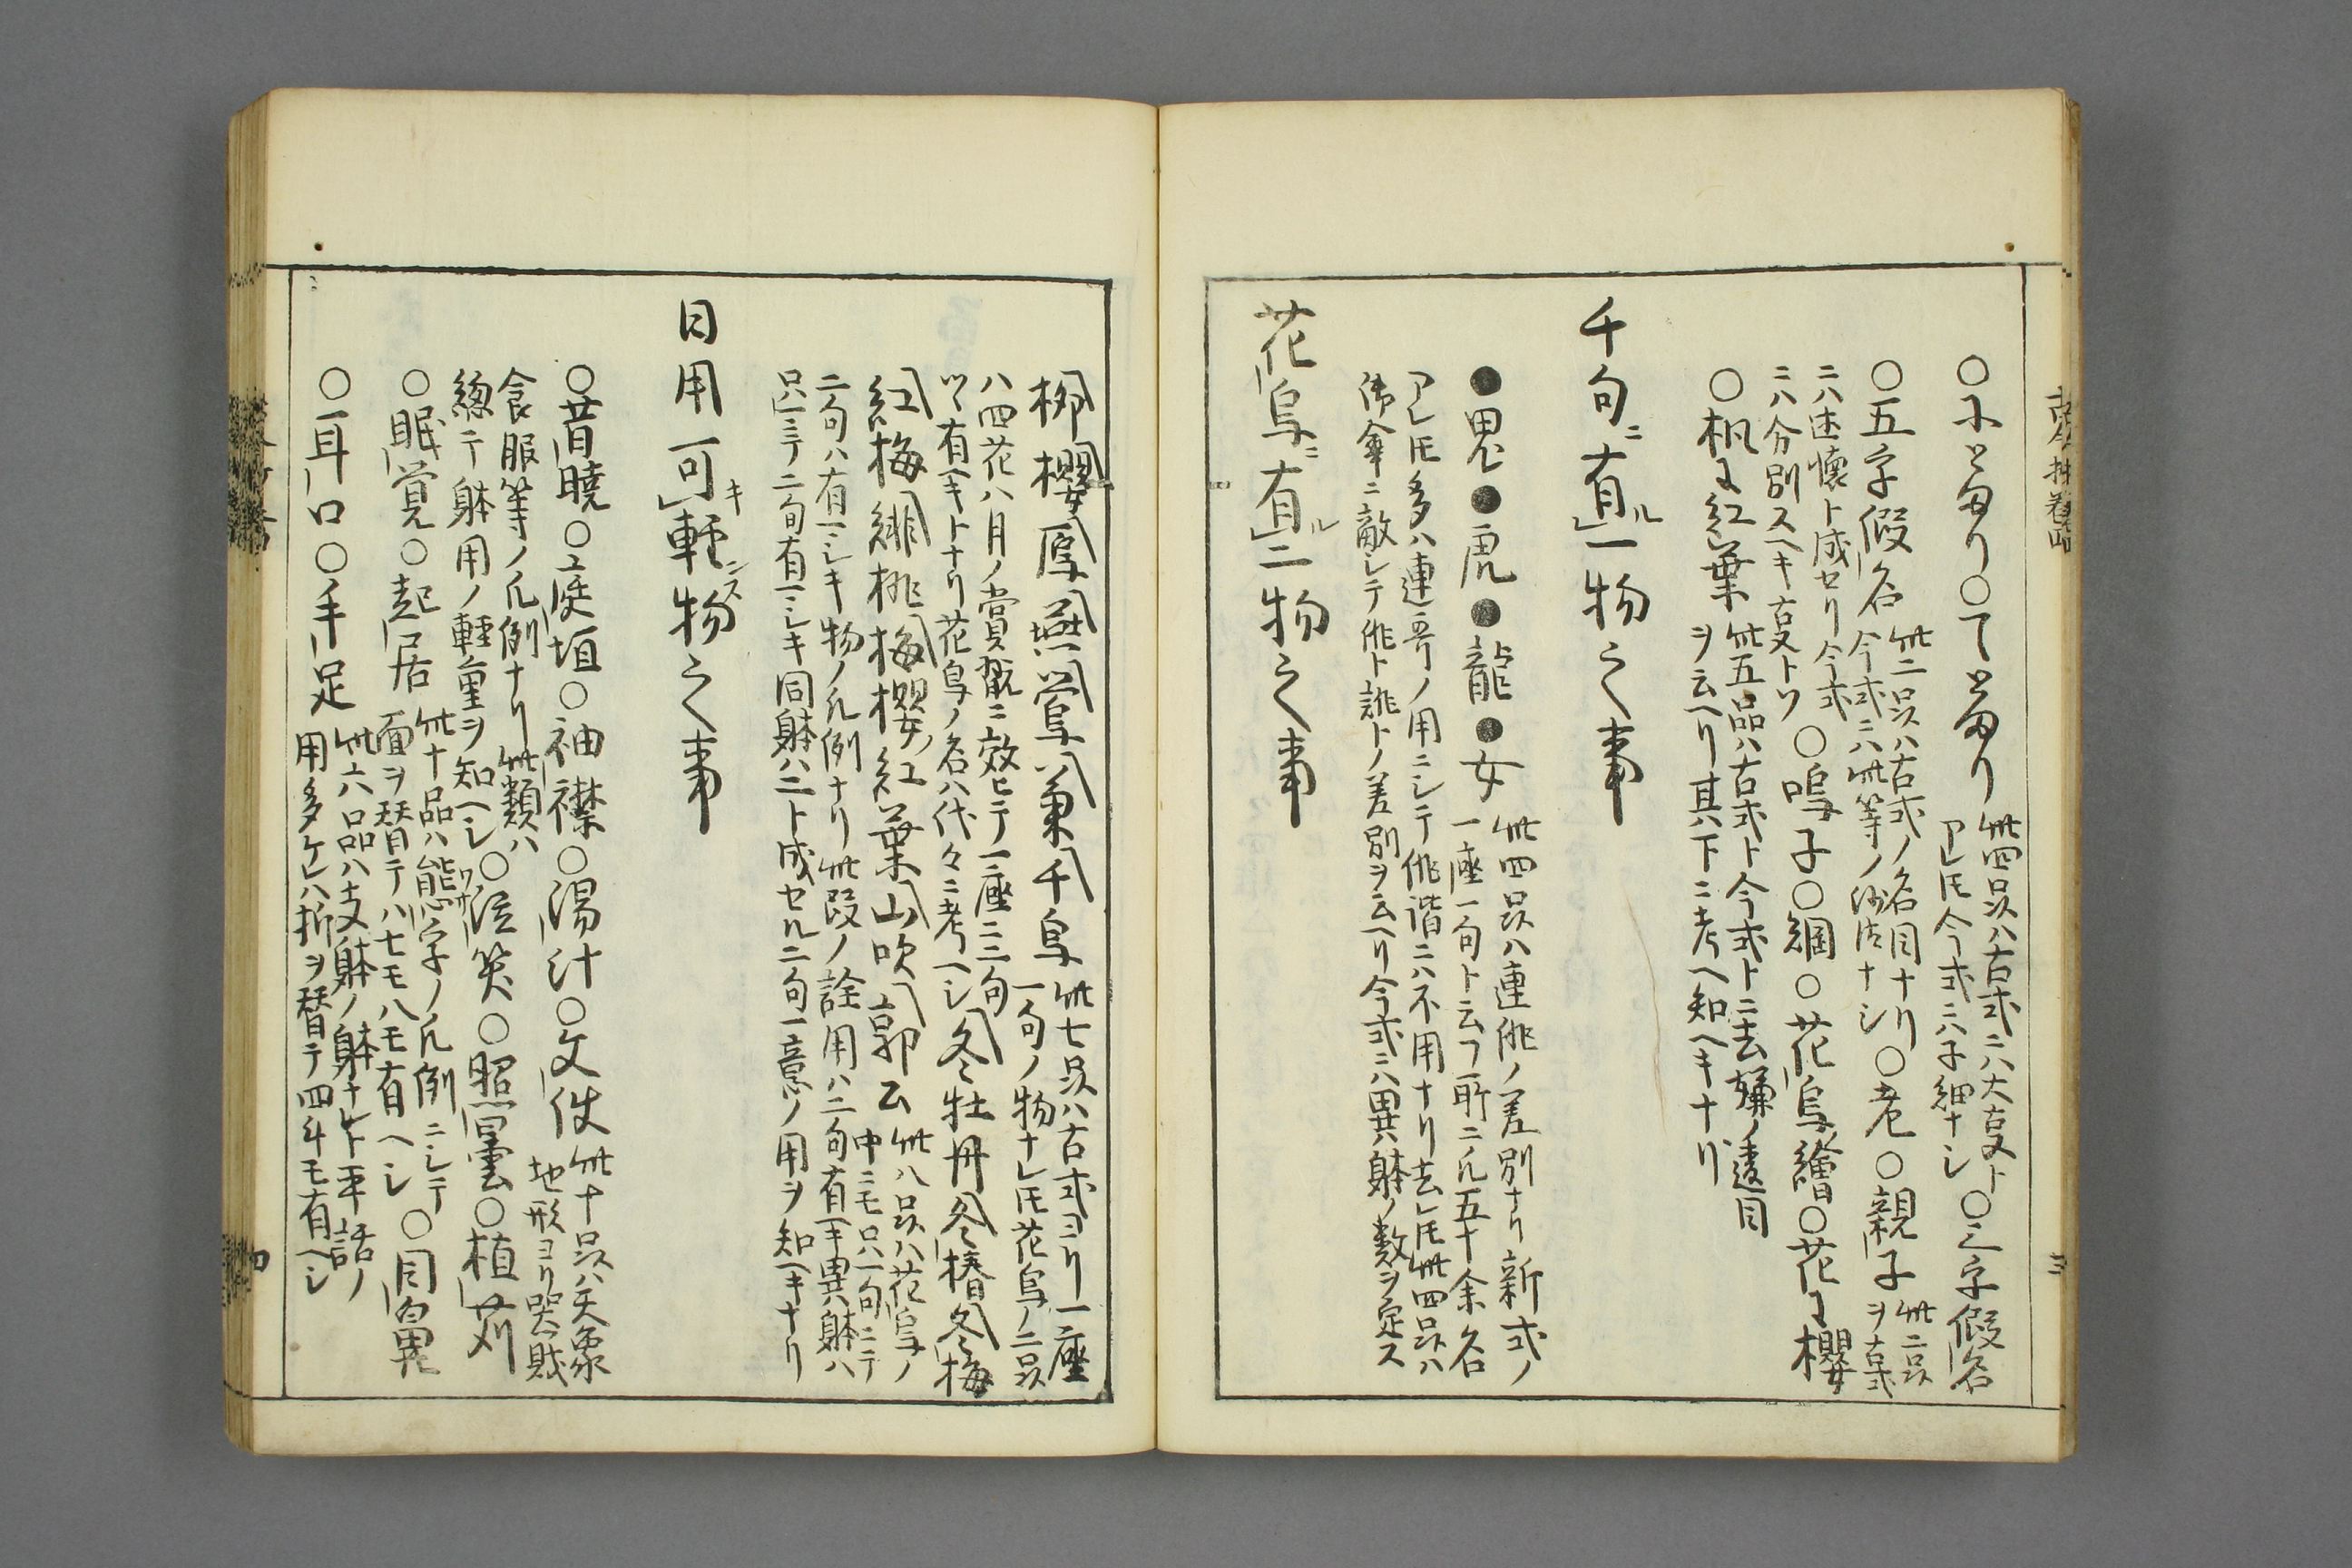 ○にとまり○てとまり 此四品ハ古式ニハ大㕝ト
アレ𪜈今式ニハ子細ナシ ○三字假名
○五字假名 此二品ハ古式ノ名目ナリ
今式ニハ此等ノ沙汰ナシ ○老○親子 此二品
ヲ古式
ニハ述懐ト成セリ今式
ニハ分別スヘキ㕝トソ ○鳴子○綱○花鳥繪○花に櫻
○楓に紅葉 此五品ハ古式ト今式ト二去嫌ノ遠目
ヲ云ヘリ其下ニ考ヘ知ヘキナリ
千句ニ有ル一物之事
●鬼●虎●龍●女 此四品ハ連俳ノ差別ナリ新式ノ
一座一句ト云フ所ニ凡五十余名
アレ𪜈多ハ連哥ノ用ニシテ俳諧ニハ不用ナリ去レ𪜈此四品ハ
俳傘ニ敵シテ俳ト誹トノ差別ヲ云ヘリ今式ニハ異躰ノ数ヲ定ス
花鳥ニ有ル二物之事
柳 櫻 鳫 燕 鶯 菊 千鳥 此七品ハ古式ヨリ一座
一句ノ物ナレ𪜈花鳥ノ二品
ハ四花八月ノ賞翫ニ效ヒテ一座ニ三句
ツヽ有ヘキトナリ花鳥ノ名ハ代々ニ考ヘシ 冬牡丹 冬椿 冬梅
紅梅 緋桃 梅櫻ノ紅葉 山吹 郭公 此八品ハ花鳥ノ
中ニモ只一句ニテ
二句ハ有マシキ物ノ凡例ナリ此段ノ詮用ハ二句有ヘキ異躰ハ
只一ニテ二句有マシキ同躰ハ二ト成セル二句一意ノ用ヲ知ヘキナリ
日用可キ軽ンス物之事
○昔曉○庭垣○袖襟○湯汁○文使 此十品ハ天象
地形ヨリ器財
食服等ノ凡例ナリ此類ハ
總テ躰用ノ軽重ヲ知ヘシ ○泣笑○照曇○植苅
○眠覚○起居 此十品ハ態字ノ凡例ニシテ
面ヲ替テハ七モ八モ有ヘシ ○目鼻
○耳口○手足 此六品ハ支躰ノ躰ナレト平話ノ
用多ケレハ折ヲ替テ四ツモ有ヘシ